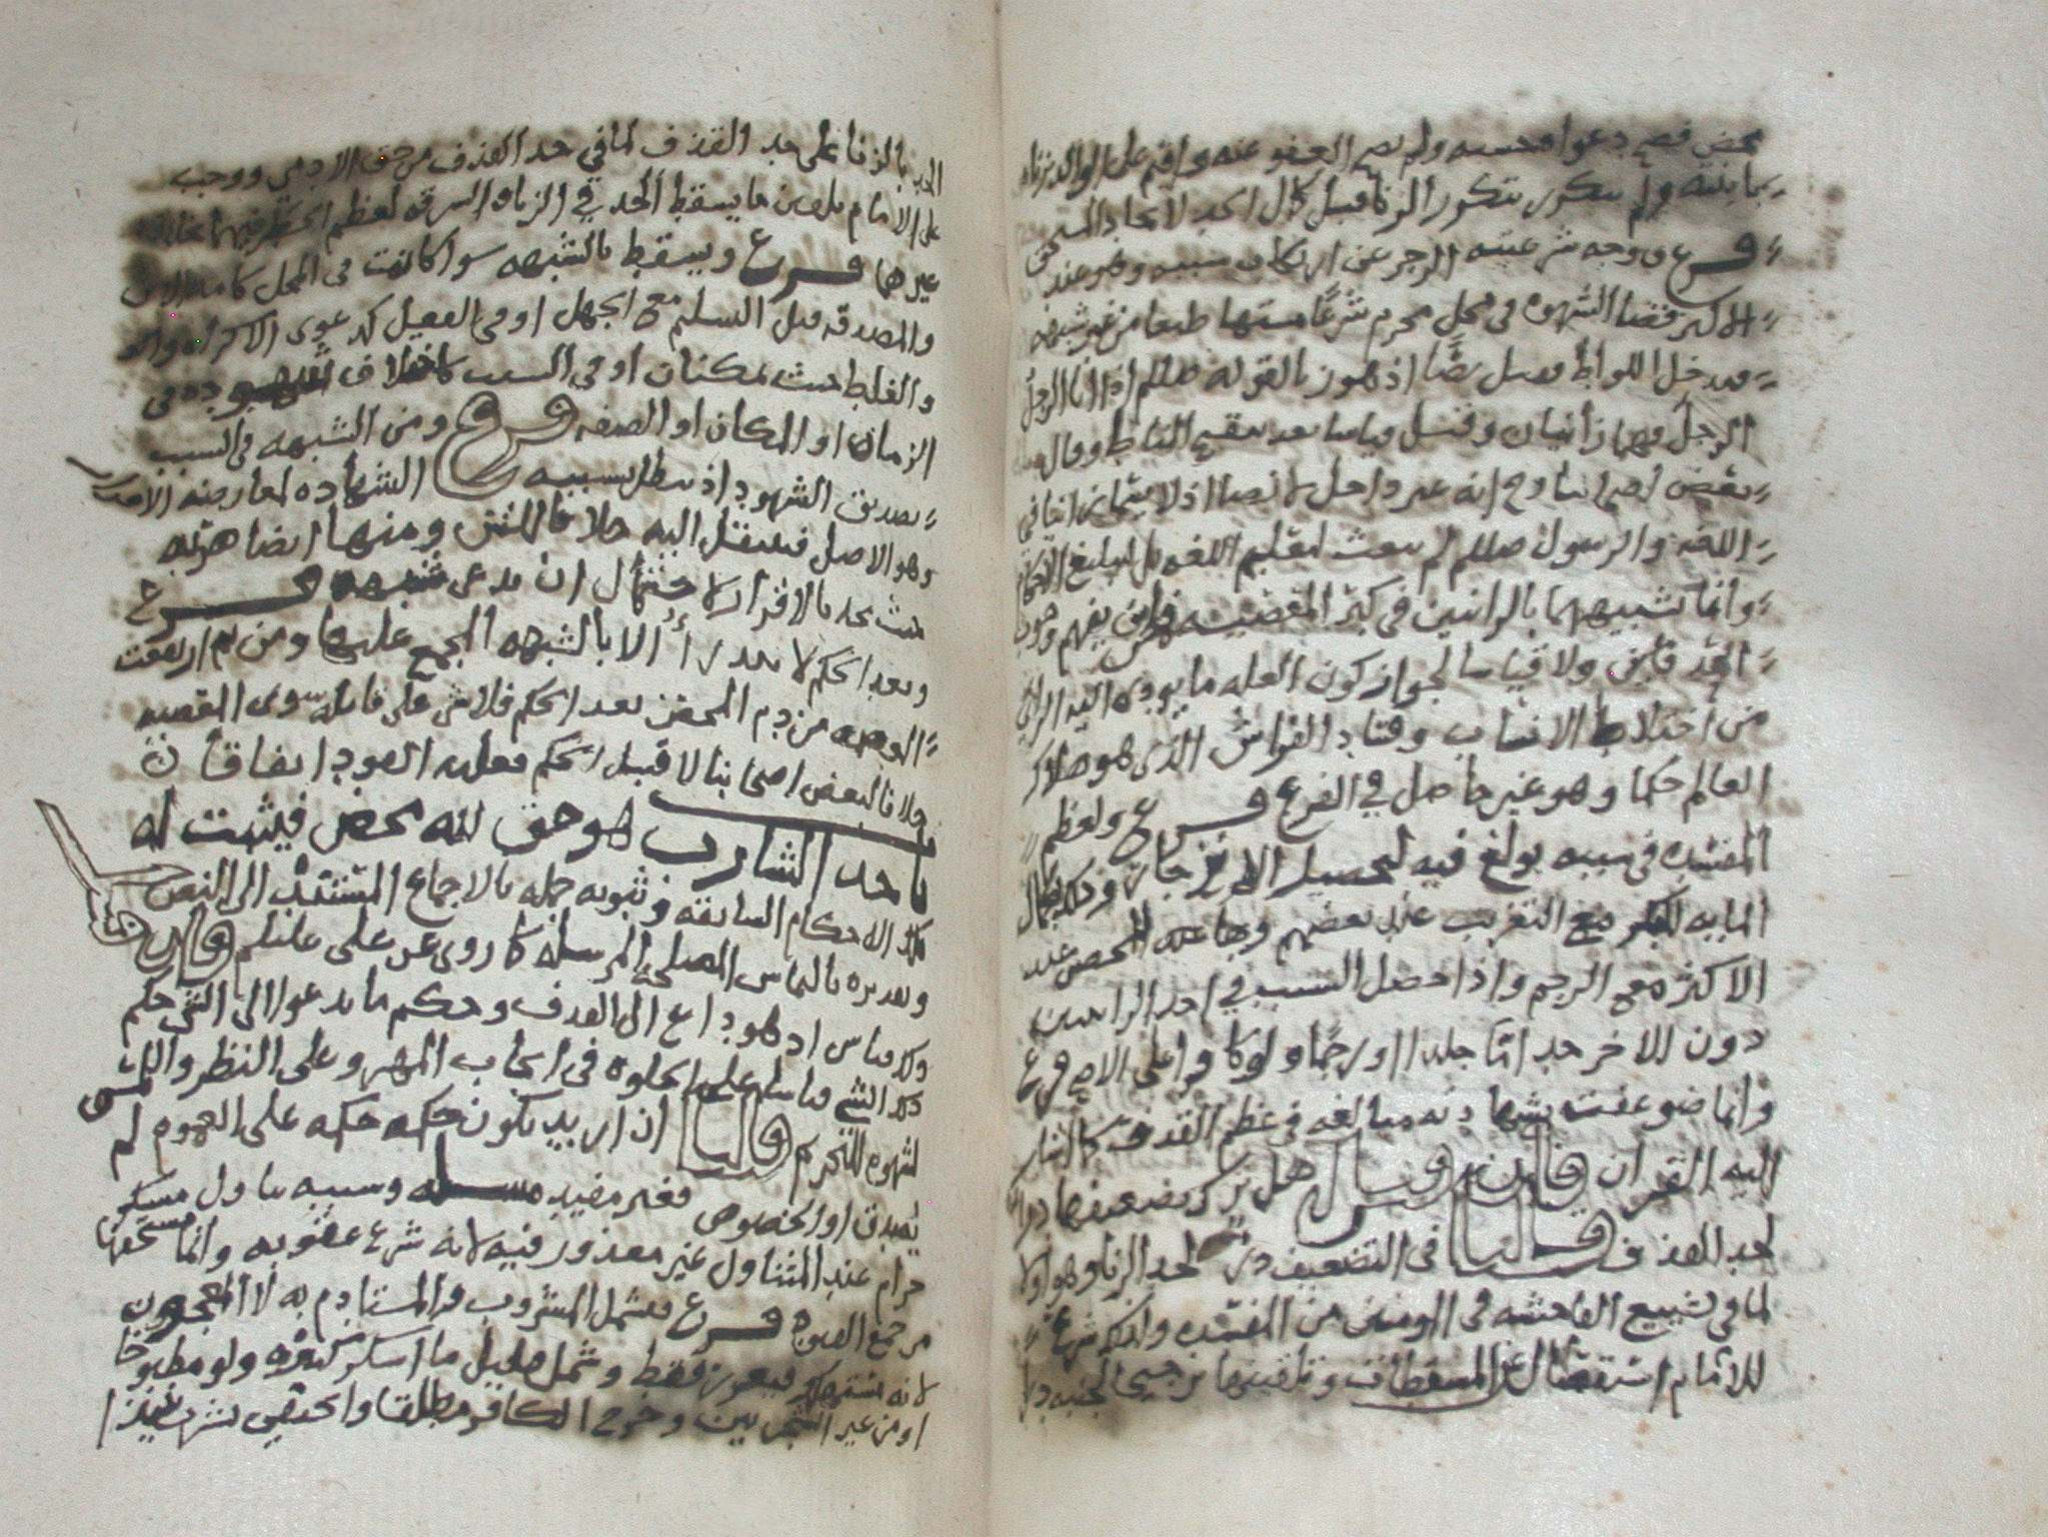 محض فصح دعواه حسبه ولم يصح العفو عنه واقيم على الوالد بزناه
بابنته ولم يتكرر بتكرر الزنا قبل كمال الحد لاتحاد السبب
فرع ووجه شرعيته الزجر عن ارتكاب سببه وهو عند
الاكثر قضا الشهوه في محل محرم شرعا مشتها طبعا من غير شبهه
فيدخل اللواط قيل نصا اذ هو زنا لقوله صللم اذا اتا الرجل
الرجل فهما زانيان وقيل قياسا بعد تنقيح المناط وقال
بعض اصحابنا وح انه غير داخل لا نصا اذ لا يسما زانيا في
اللغه والرسول صللم لم يبعث لتعليم اللغه بل لتبليغ الاحكام
وانما تشبيههما بالزانيين في كبر المعصيه فمن اين يفهم وجوب
الحد ولا قياسا لجواز كون العله ما يودي اليه الزنا
من اختلاط الانساب وفساد الفراش الذي هو صلاح
العالم حكما وهو غير حاصل في الفرع فرع ولعظم
المفسده في سببه بولغ فيه لتحصيل الانزجار وذلك بكمال
المايه للبكر مع التغريب عند بعضهم وبها عند المحصن عند
الاكثر مع الرجم واذا حصل السبب في احد الزانيين
دون الاخر حد اما جلدا او رجما ولو كافرا على الاصح فرع
وانما ضوعفت شهادته مبالغه في عظم القذف كما اشار
اليه القران فان قيل هل ترك تضعيفها درا
لحد القذف قلنا في التضعيف درا لحد الزنا وهو اولا
لما في تشييع الفاحشه في المومنين من المفسده ولذلك شرع
للامام استقصا كل المسقطات وتلقينها ترجيحا لجنبه درا
الحد بالزنا على حد القذف لما في حد القذف من حق الادمي ووجب
على الامام تلقين ما يسقط الحد في الزنا والسرقه لعظم الخطر فيهما بخلاف
غيرهما فرع ويسقط بالشبهه سوا كانت في المحل كامه الابن
والمصدقه قبل التسليم مع الجهل او في الفعل كدعوى الاكراه
والغلط حيث يمكنان او في السبب كاختلاف شهوده في
الزمان او المكان او الصفه فرع ومن الشبهه في السبب
تصديق الشهود اذ تبطل بسببه الشهاده لمعارضه الاصل
وهو الاصل فينتقل اليه خلافا للمش ومنها ايضا هربه
حيث حد بالاقرار لاحتمال ان يدعي شبهه فرع
وبعد الحكم لا يعد درا الا بالشبهه المجمع عليها ومن ثم ارتفعت
الوهيه من دم المحصن بعد الحكم فلا شي على قاتله سوى المعصيه
خلافا لبعض اصحابنا لا قبل الحكم فعليه القود اتفاقا
باب حد الشارب هو حق لله محض فيثبت له
تلك الاحكام السابقه وثبوته جمله بالاجماع المستند الى النص
وتقديره بالقياس المصلحي المرسل كما روي عن علي عليلم فان قيل
وكل قياس اذ هو داع الى القذف وحكم ما يدعوا الى الشي حكم
ذلك الشي قياسا على الخلوه في ايجاب المهر وعلى النظر واللمس
لشهوه للتحريم قلنا ان اريد بكون حكمه حكمه على العموم لم
يصدق او الخصوص فغير مفيد مسله وسببه تناول مسكر
حرام عند المتناول غير معذور فيه لانه شرع عقوبه وانما يستحقها
مرتكب المعصيه فرع فيشمل المشروب والمستادم به لا المعجون
لانه مستهلك فيعزر فقط وشمل قليل ما اسكر كثيره ولو مطبوخا
او من غير الشجرتين وخرج الكافر مطلقا والحنفي بشرب نبيذ